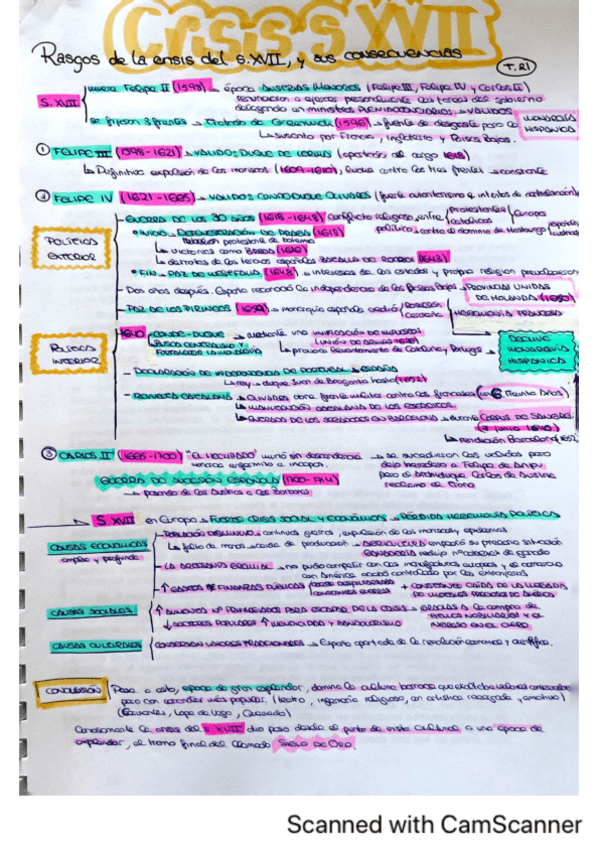 CRISIS S XVII
Rasgos de la crisis del s.XVII, y sus CONSECUENCIAS
T.R1
S. XVII
muere Felipe II (1598) → época AUSTRIAS MENORES (Felipe III, Felipe IV y Carlos II)
renuncian a ejercer personalmente las tareas del gobierno
delegando en ministros : VALIDOS
se fijaron 3 frentes → Tratado de Greenwich (1596) → fuente de desgaste para la
MONARQUÍA HISPÁNICA
↳ suscrito por Francia, Inglaterra y Países Bajos.
① FELIPE III (1598-1621) → VALIDO: DUQUE DE LERMA (apartado del cargo 1618)
↳ Definitiva expulsión de los moriscos (1609-1610), lucha contra los tres frentes → constante
② FELIPE IV (1621-1665) → VALIDO: CONDE DUQUE OLIVARES (fuerte autoritarismo e intentos de
POLÍTICA EXTERIOR
GUERRA DE LOS 30 AÑOS (1618-1648) conflicto religioso, entre Protestantes católicos Europa
político, contra el dominio de Habsburgo
INICIO → DEFENESTRACIÓN DE PRAGA (1618)
Rebelión protestante de Bohemia
↳ victorias como BREDA
↳ derrotas de los tercios españoles BATALLA DE ROCROI (1643)
FIN → PAZ DE WESTFALIA (1648) → intereses de los estados y propia religión prevalecieron
Dos años después, España reconoció la independencia de los Países Bajos → PROVINCIAS UNIDAS
DE HOLANDA (1650)
PAZ DE LOS PIRINEOS (1659) → monarquía española cedió Rosellón Cerdaña → HEGEMONÍA FRANCESA
POLÍTICA INTERIOR
1640 CONDE-DUQUE → mediante una UNIFICACIÓN DE
(UNIÓN DE ARMAS 1626)
↳ provocó levantamiento de Cataluña y Portugal
DECLIVE MONARQUÍA HISPÁNICA
DECLARACIÓN DE INDEPENDENCIA DE PORTUGAL → ESPAÑA
↳ rey → duque Juan de Braganza
REVUELTA CATALANA → OLIVARES abre frente militar contra los franceses (en G Treinta Años)
↳ MANUTENCIÓN CATALANA DE LOS EJÉRCITOS.
↳ GUERRA DE LOS SEGADORES EN BARCELONA → durante CORPUS DE SANGRE
(7 junio 1640)
↳ rendición Barcelona (1652)
③ CARLOS II (1665-1700) "EL HECHIZADO" murió sin descendencia → se sucedieron los validos pero
monarca enfermizo e incapaz.
dejó heredero a Felipe de Anjou
pero el archiduque Carlos de Austria
GUERRA DE SUCESIÓN ESPAÑOLA (1700-1714)
→ pasando de los Austrias a los Borbones
S. XVII en Europa → FUERTE CRISIS SOCIAL Y ECONÓMICA → PÉRDIDA HEGEMONÍA POLÍTICA
CAUSAS ECONÓMICAS
amplia y profunda
POBLACIÓN DISMINUYÓ → continuas guerras, expulsión de los moriscos y epidemias
↳ falta de mano → caída de producción → AGRICULTURA empeoró su precaria situación
GANADERÍA redujo nº cabezas de ganado
LA ARTESANÍA → no pudo competir con las manufacturas europeas, y el comercio
con América acabó controlado por los extranjeros
↑ GASTOS DE FINANZAS PÚBLICAS + CONSTANTE CAÍDA DE LOS INGRESOS,
CAUSAS SOCIALES
↑ AUMENTO Nº PRIVILEGIADOS PARA ESCAPAR DE LA CRISIS → GRACIAS A la compra de
TÍTULOS NOBILIARIOS Y EL
INGRESO EN EL CLERO
↓ SECTORES POPULARES ↑ MENDICIDAD Y BANDOLERISMO
CAUSAS CULTURALES
CONSERVAN VALORES TRADICIONALES → España apartada de la revolución económica y científica.
CONCLUSIÓN
Pese a esto, época de gran esplendor, domina la cultura barroca que exaltaba valores
pero con carácter más popular. (teatro, imaginería religiosa,
(Cervantes, Lope de Vega, Quevedo)
Curiosamente la crisis del s. XVII dio paso desde el punto de vista cultural a una época de
esplendor, el tramo final del llamado SIGLO DE ORO.
Scanned with CamScanner